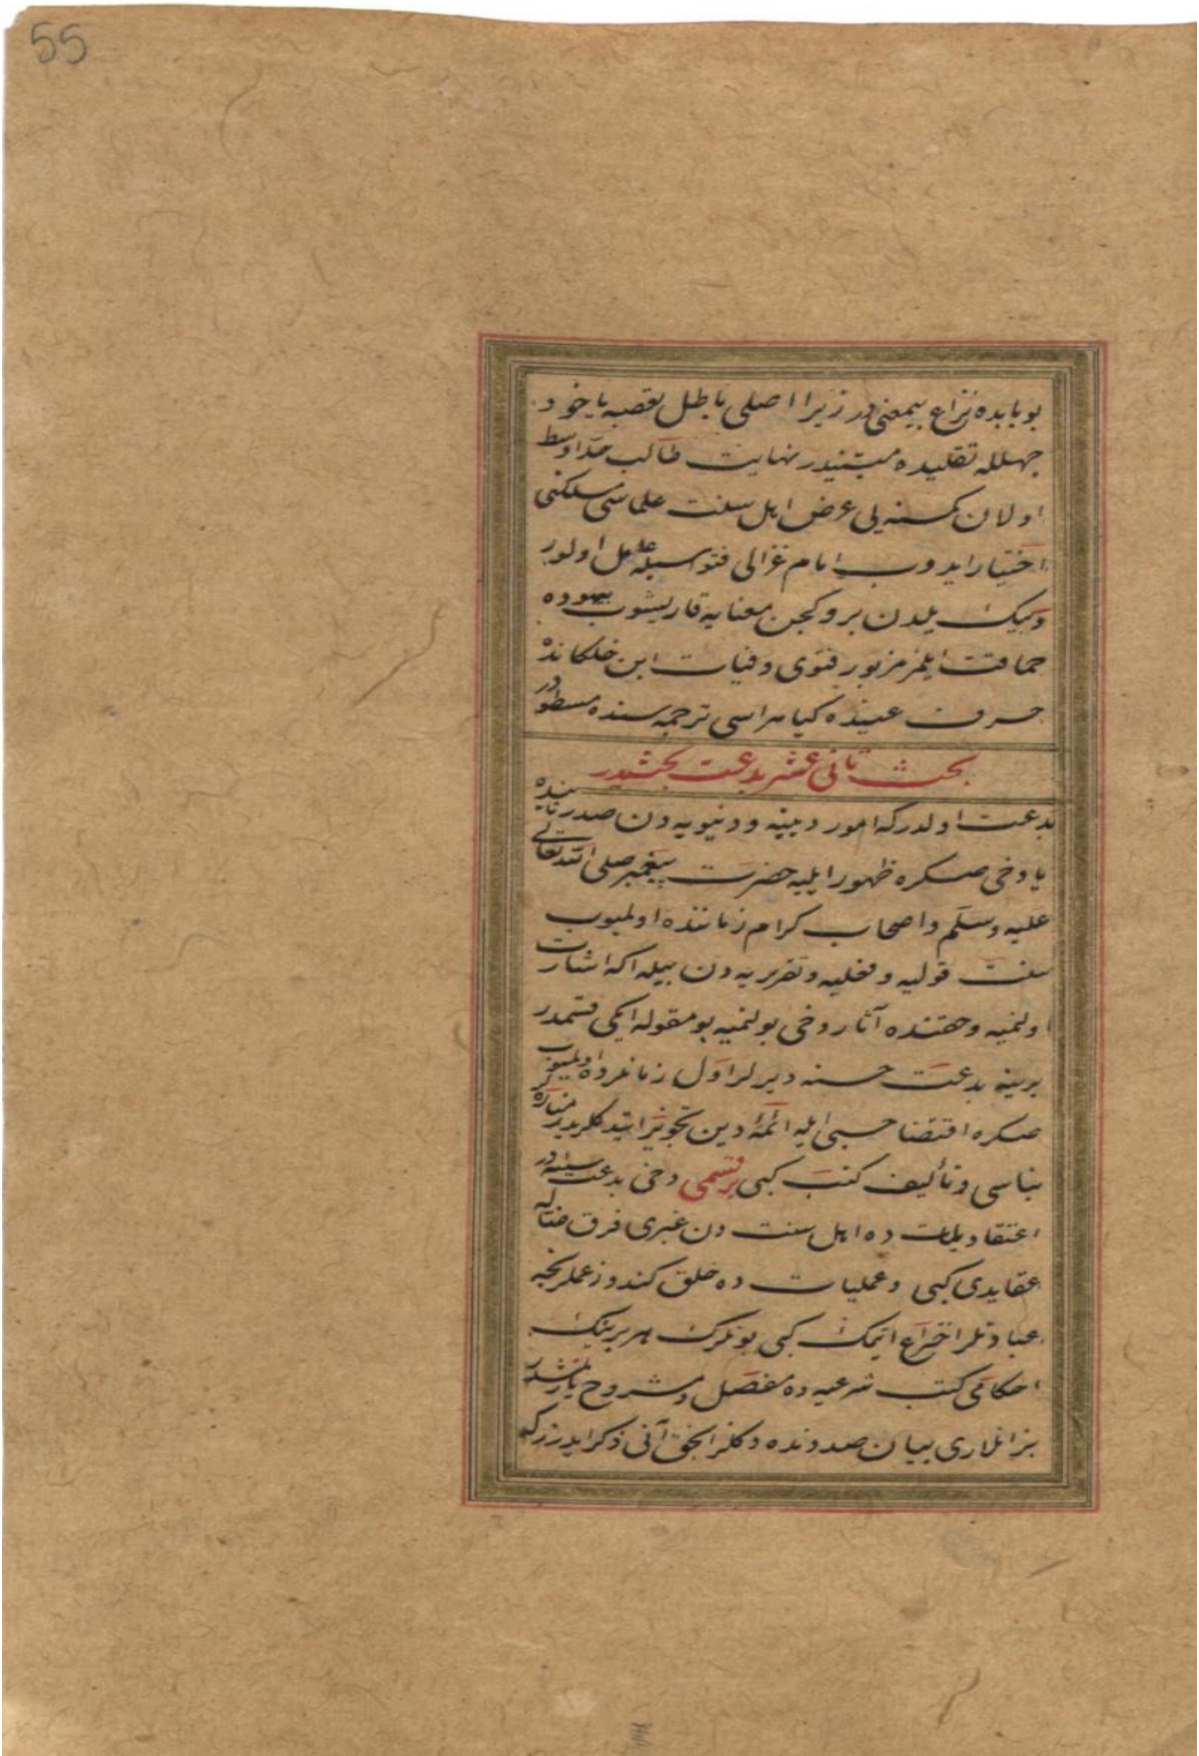 55
بو بابده نزاع بيمعنى در زيرا اصلى باطل تعصبه ياخود
جهلله تقليده مبتنيدر نهايت طالب حد اوسط
اولان كمسنه يى عرض اهل سنت علماسى مسلكنى
اختيار ايدوب امام غزالى فتواسيله عامل اولور
وبيك يلدن برو كچن معنايه قاريشوب بيهوده
حماقت ايلمز مزبور فتوى وفيات ابن خلكانده
حرف عينده كيا هراسى ترجمه سنده مسطور در
بحث ثانى عشر بدعت بحثيدر
بدعت اولدركه امور دينيه ودنيويه دن صدر ثانيده
يا دخى صكره ظهور ايليه حضرت پيغمبر صلى الله تعالى
عليه وسلم واصحاب كرام زماننده اولميوب
سنت قوليه وفعليه وتقريريه دن بيله اكه اشارت
اولنميه وحقنده آثار دخى بولنميه بو مقوله ايكى قسمدر
برينه بدعت حسنه ديرلر اول زمانلرده اولميوب
صكره اقتضا حسبى ايله ائمۀ دين تجويز ايتدكلريدر مناره
بناسى وتأليف كتب كبى بر قسمى دخى بدعت سيئه در
اعتقادياتده اهل سنت دن غيرى فرق ضاله
عقايدى كبى وعمليات ده خلق كندوزعملرنجه
عبادتلر اختراع ايتمك كبى بونلرك هر برينك
احكامى كتب شرعيه ده مفصل ومشروح يازلمشدر
بز انلارى بيان صددنده دكلز انجق آنى ذكر ايدرز كه